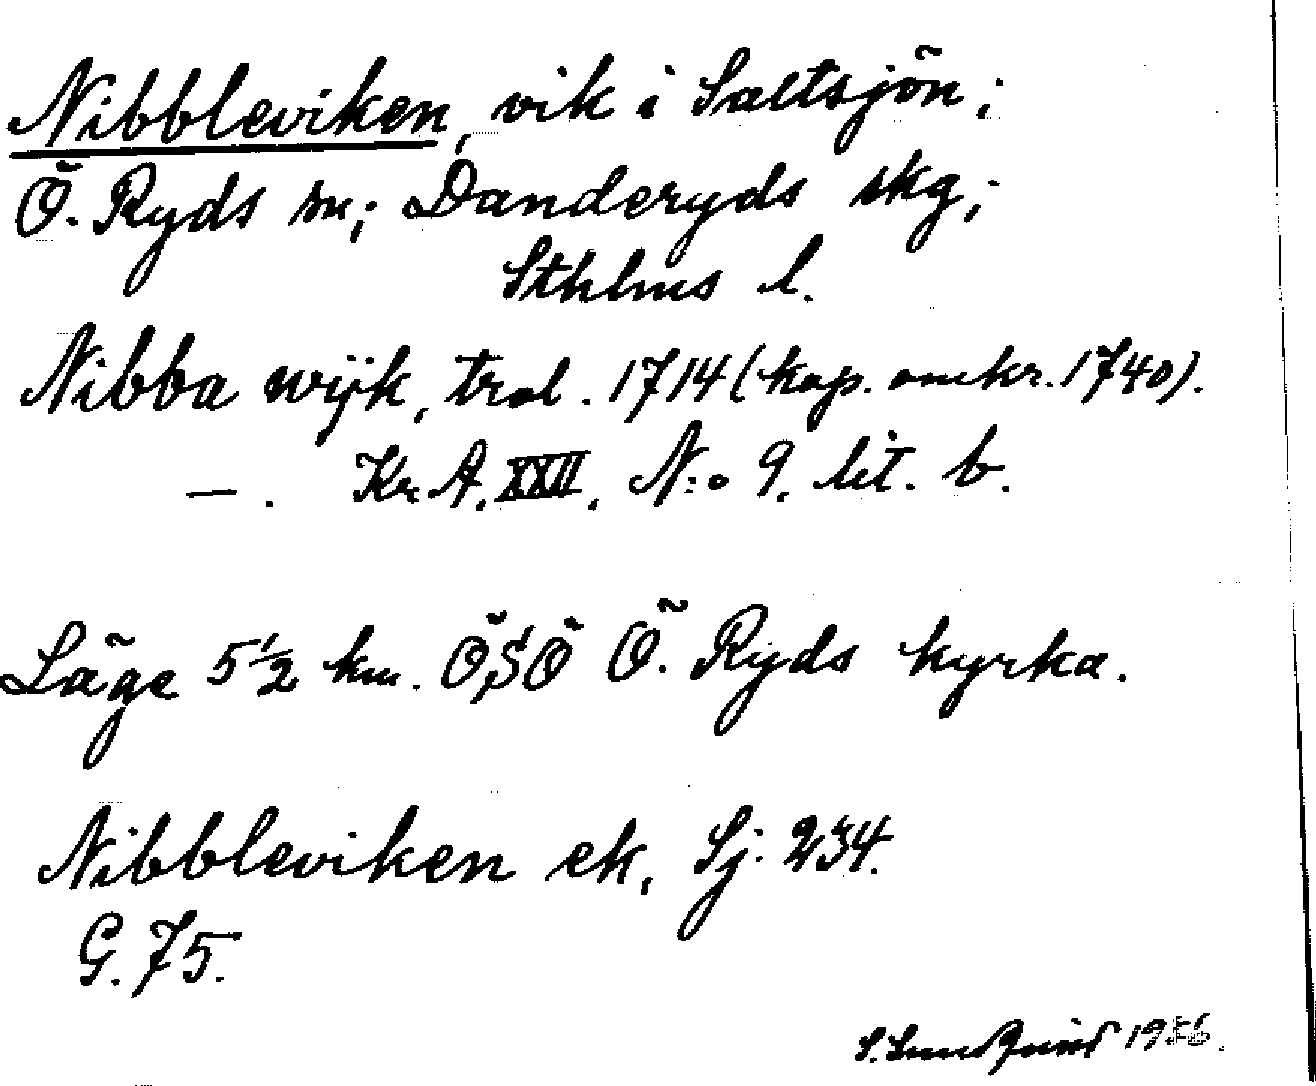 Nibbleviken, vik i Saltsjön;
Ö. Ryds sn; Danderyds skg;
Sthlms l.
Nibba wijk, trol. 1714 (kop. omkr. 1740).
—. Kr. A. XXII. N:o 9. lit. b.
Läge 5 1/2 km. ÖSÖ Ö. Ryds kyrka.
Nibbleviken ek, Sj. 234.
G. 75.
S. Sundquist 1936.